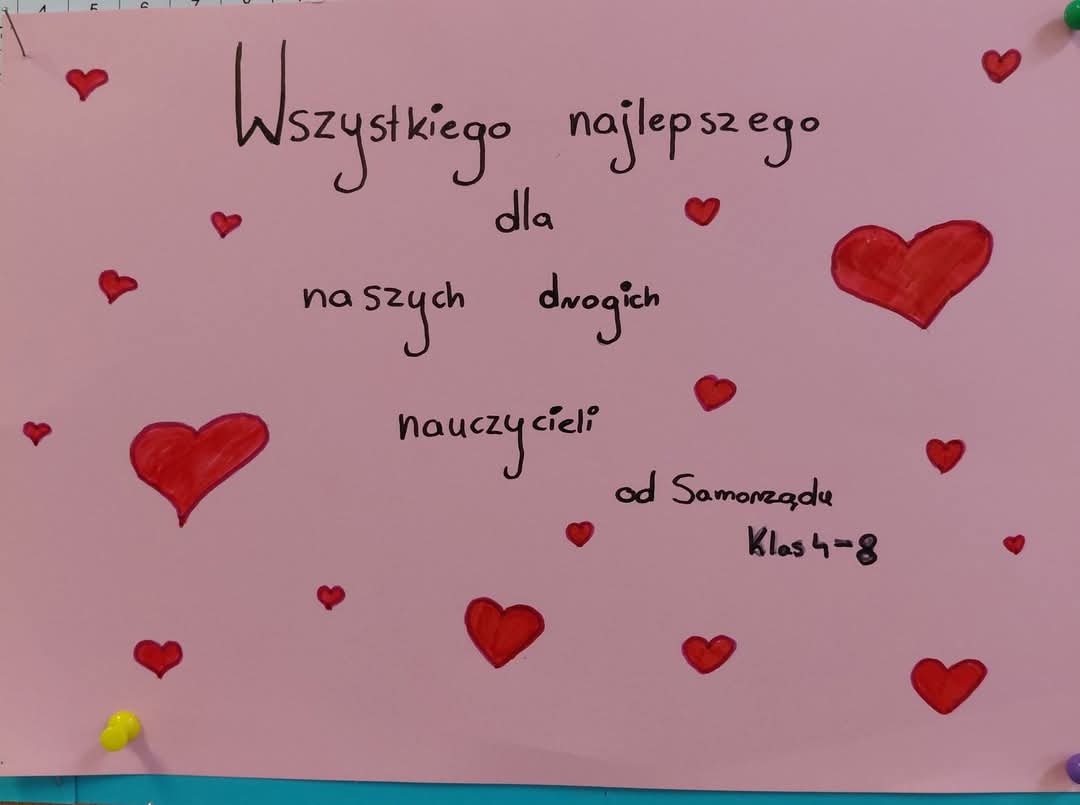 4 5 6 7 8
Wszystkiego najlepszego
dla
naszych drogich
nauczycieli
od Samorządu
Klas 4-8